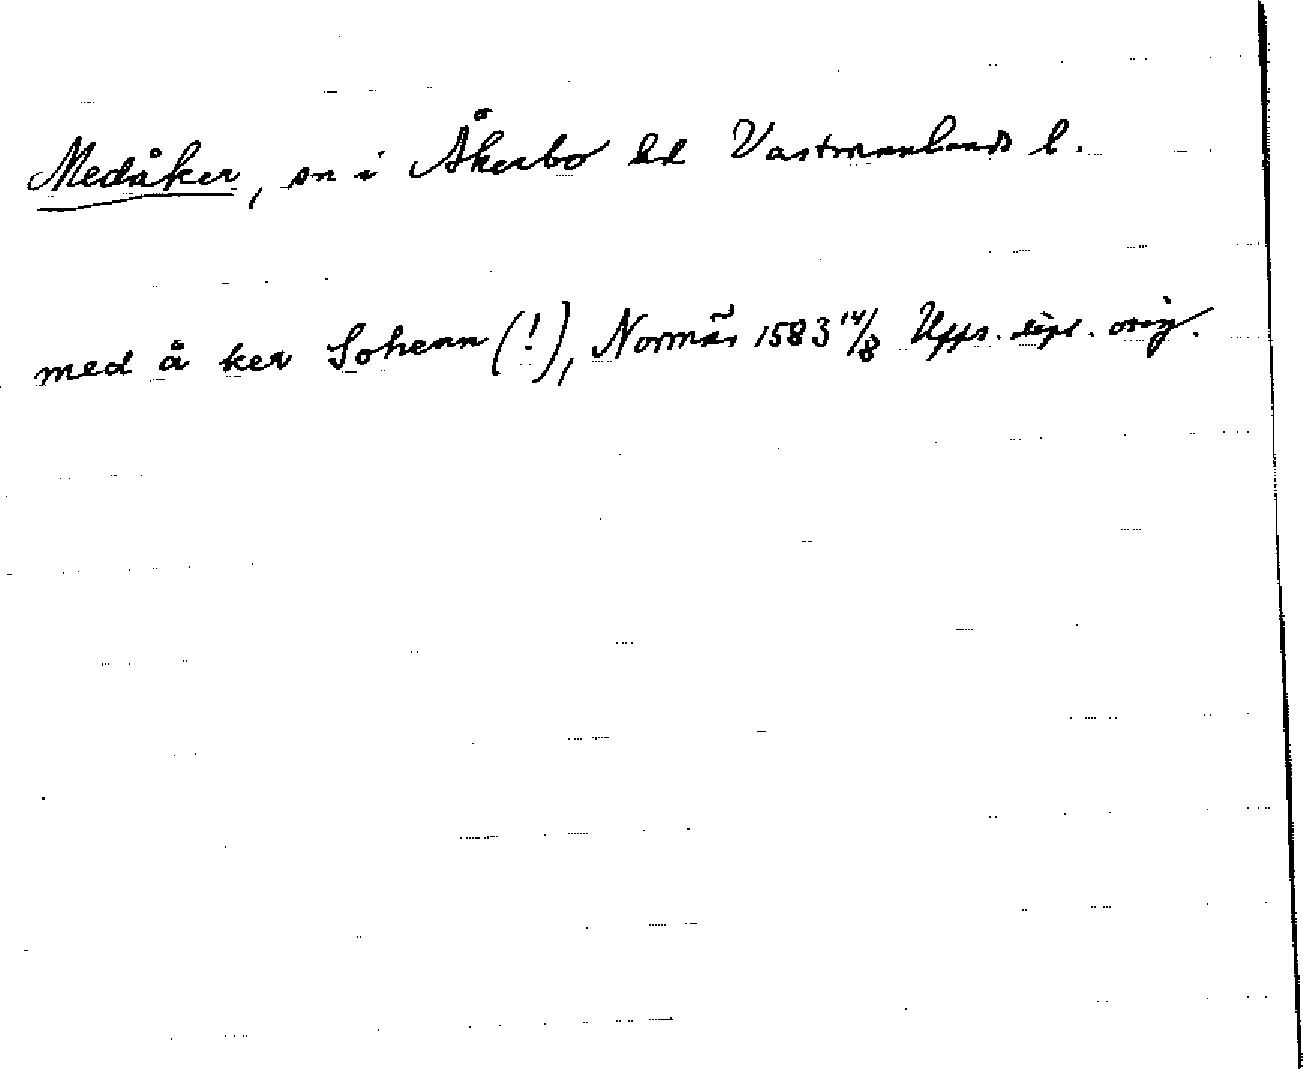 Medåker, sn i Åkerbo hd Västmanlands l.
med å ker Sohenn (!), Normäs 1583 14/8 Upps. dipl. orig.